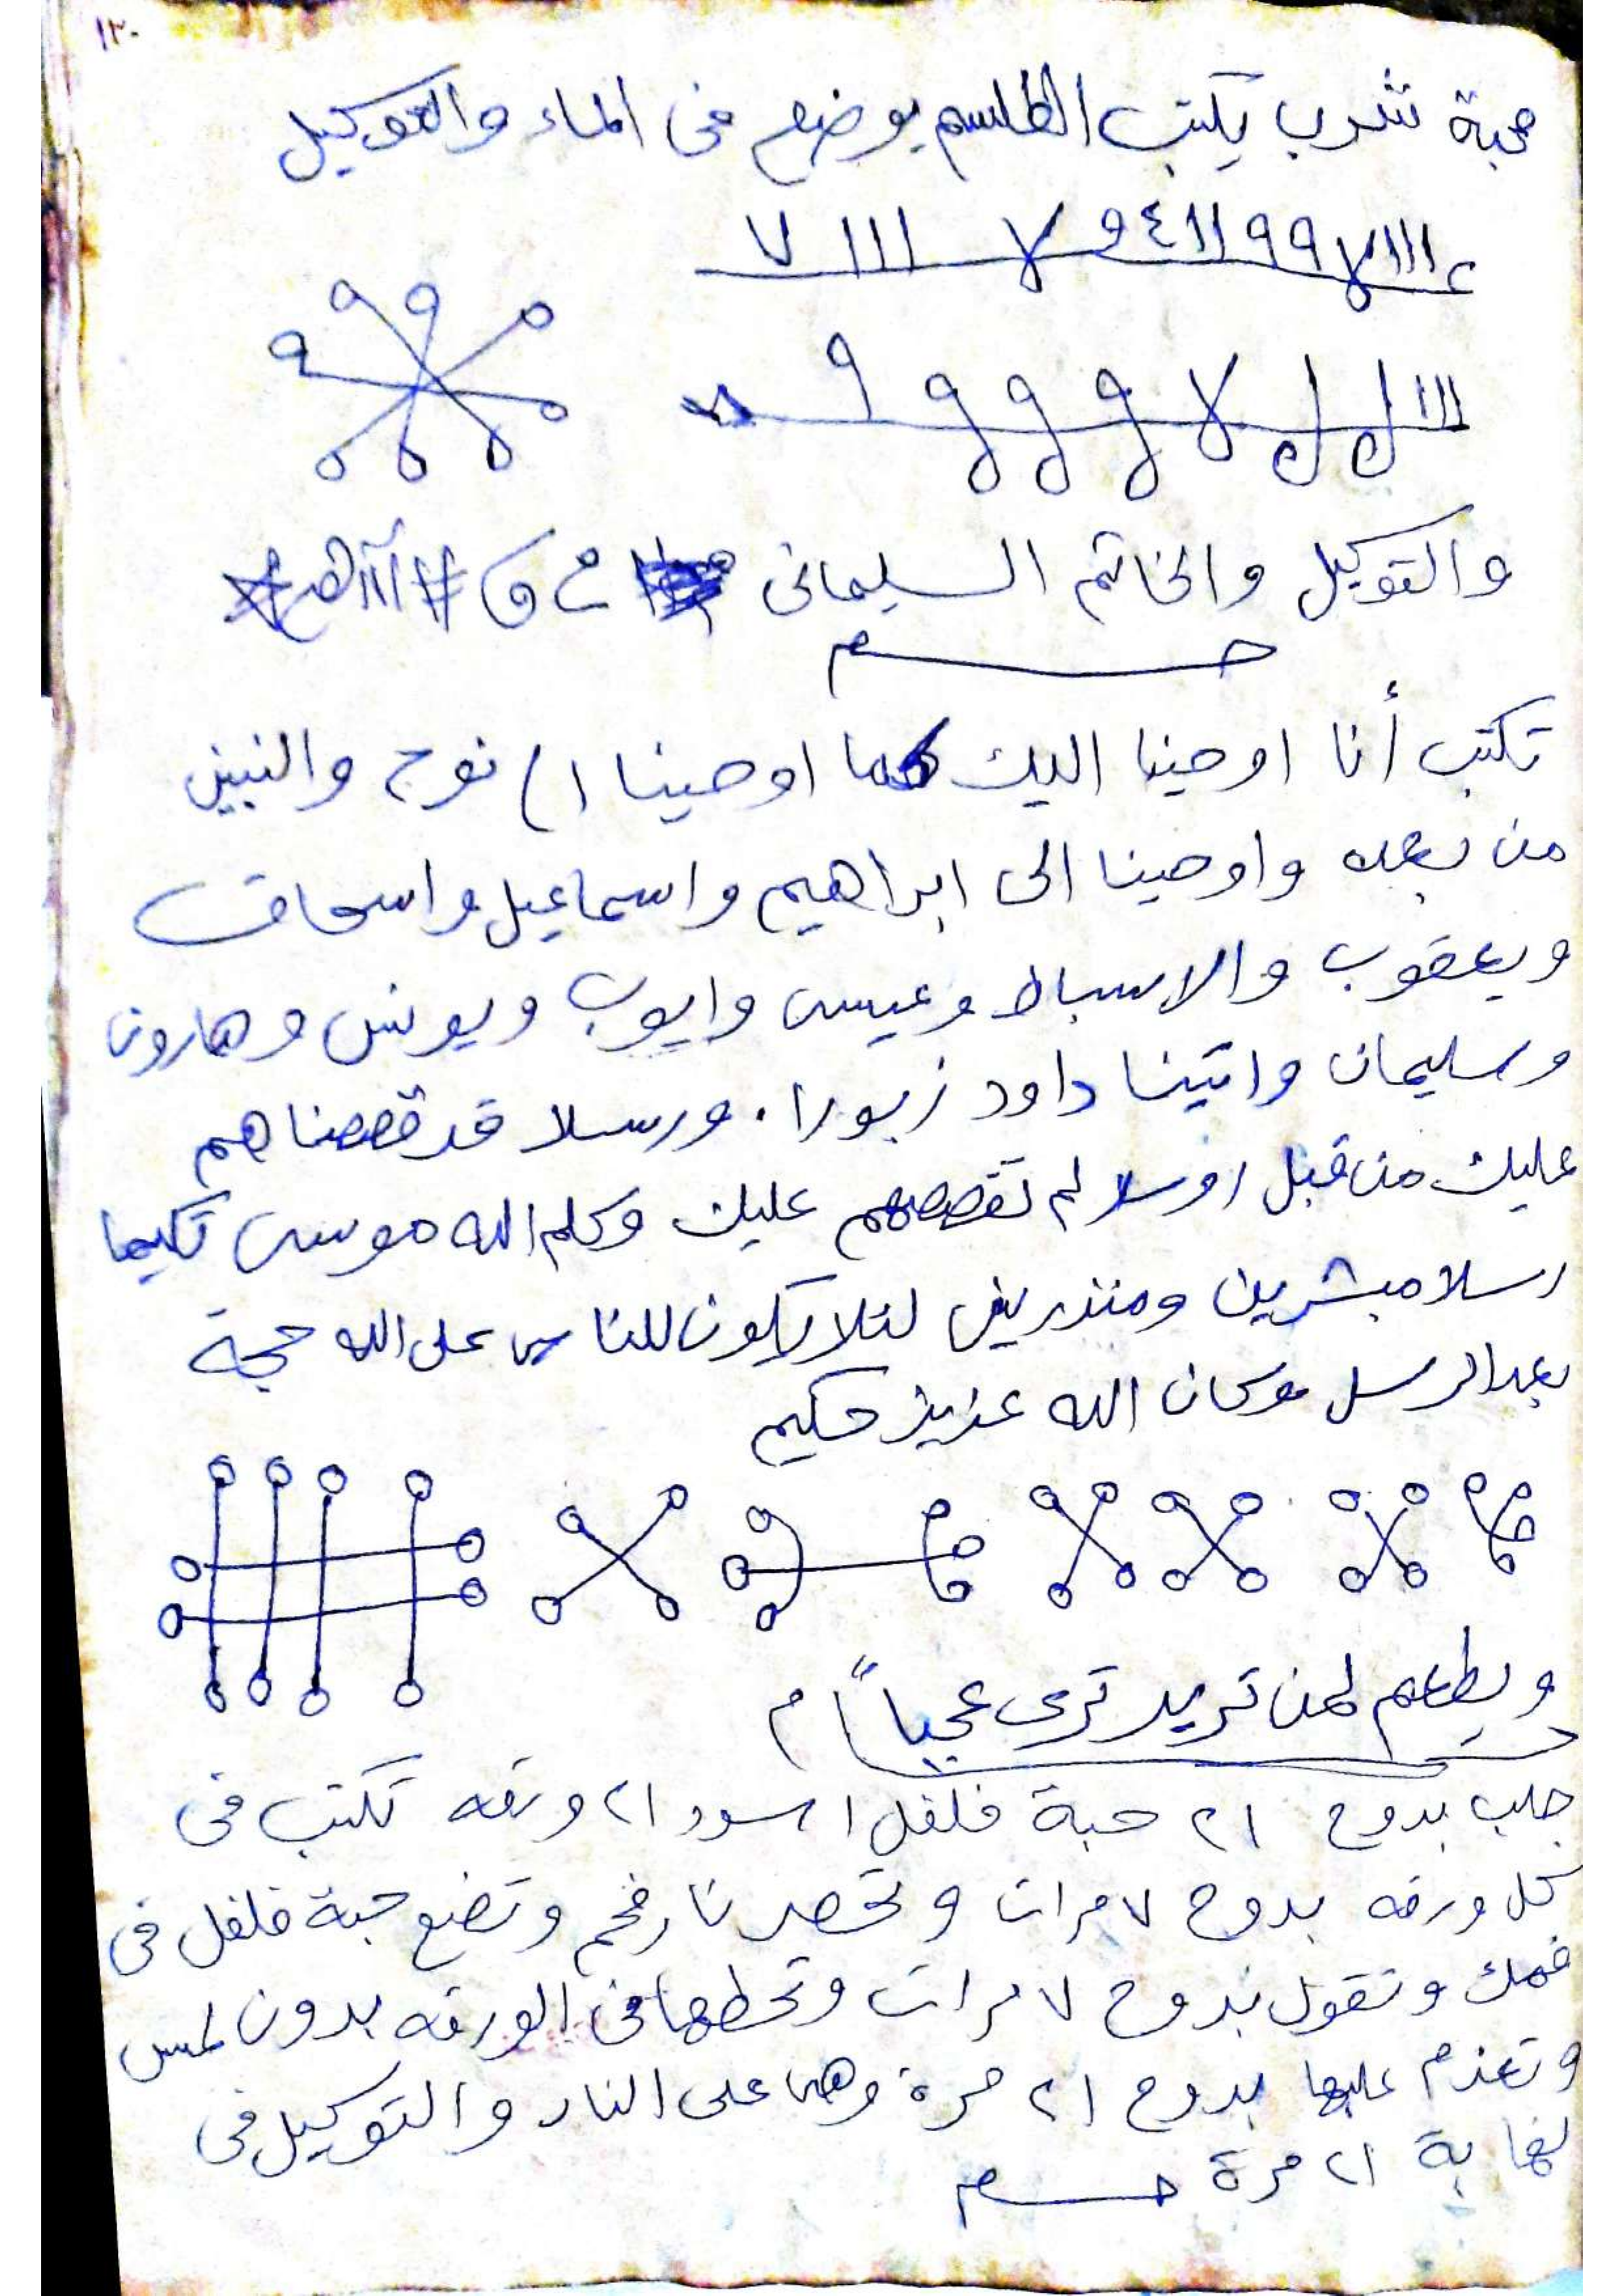 ١٣٠
محبة شرب يكتب الطلسم يوضع فى الماء والتوكيل
١١١ ٧ ٩٩ ١١ ٤ ٩ ٧ ١١١ ٧
والتوكيل والخاتم السليمانى
تكتب أنا اوحينا اليك كما اوحينا الى نوح والنبين
من بعده واوحينا الى ابراهيم واسماعيل واسحاق
ويعقوب والاسباط وعيسى وايوب ويونس وهارون
وسليمان واتينا داود زبورا . ورسلا قد قصصناهم
عليك من قبل ورسلا لم نقصصهم عليك وكلم الله موسى تكليما
رسلا مبشرين ومنذرين لئلا يكون للناس على الله حجة
بعد الرسل وكان الله عزيز حكيم
ويطعم لمن تريد ترى عجباً م
جلب بدوح ٢١ حبة فلفل اسود ٢١ ورقه تكتب فى
كل ورقه بدوح ٧ مرات وتحضر نار فحم وتضع حبة فلفل فى
فمك وتقول بدوح ٧ مرات وتحطها فى الورقه بدون لمس
وتعزم عليها بدوح ٢١ مرة وهى على النار والتوكيل فى
نهاية ٢١ مرة